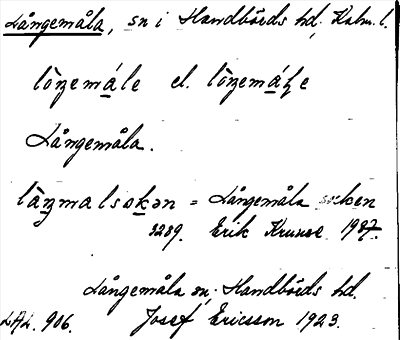 Långemåla, sn i Handbörds hd, Kalm. l.
lòŋemåle el. lòŋemåļe
Långemåla.
làŋmalsokən = Långemåla socken
3289. Erik Krunse 1937.
Långemåla sn, Handbörds hd.
LAL. 906. Josef Ericsson 1923.